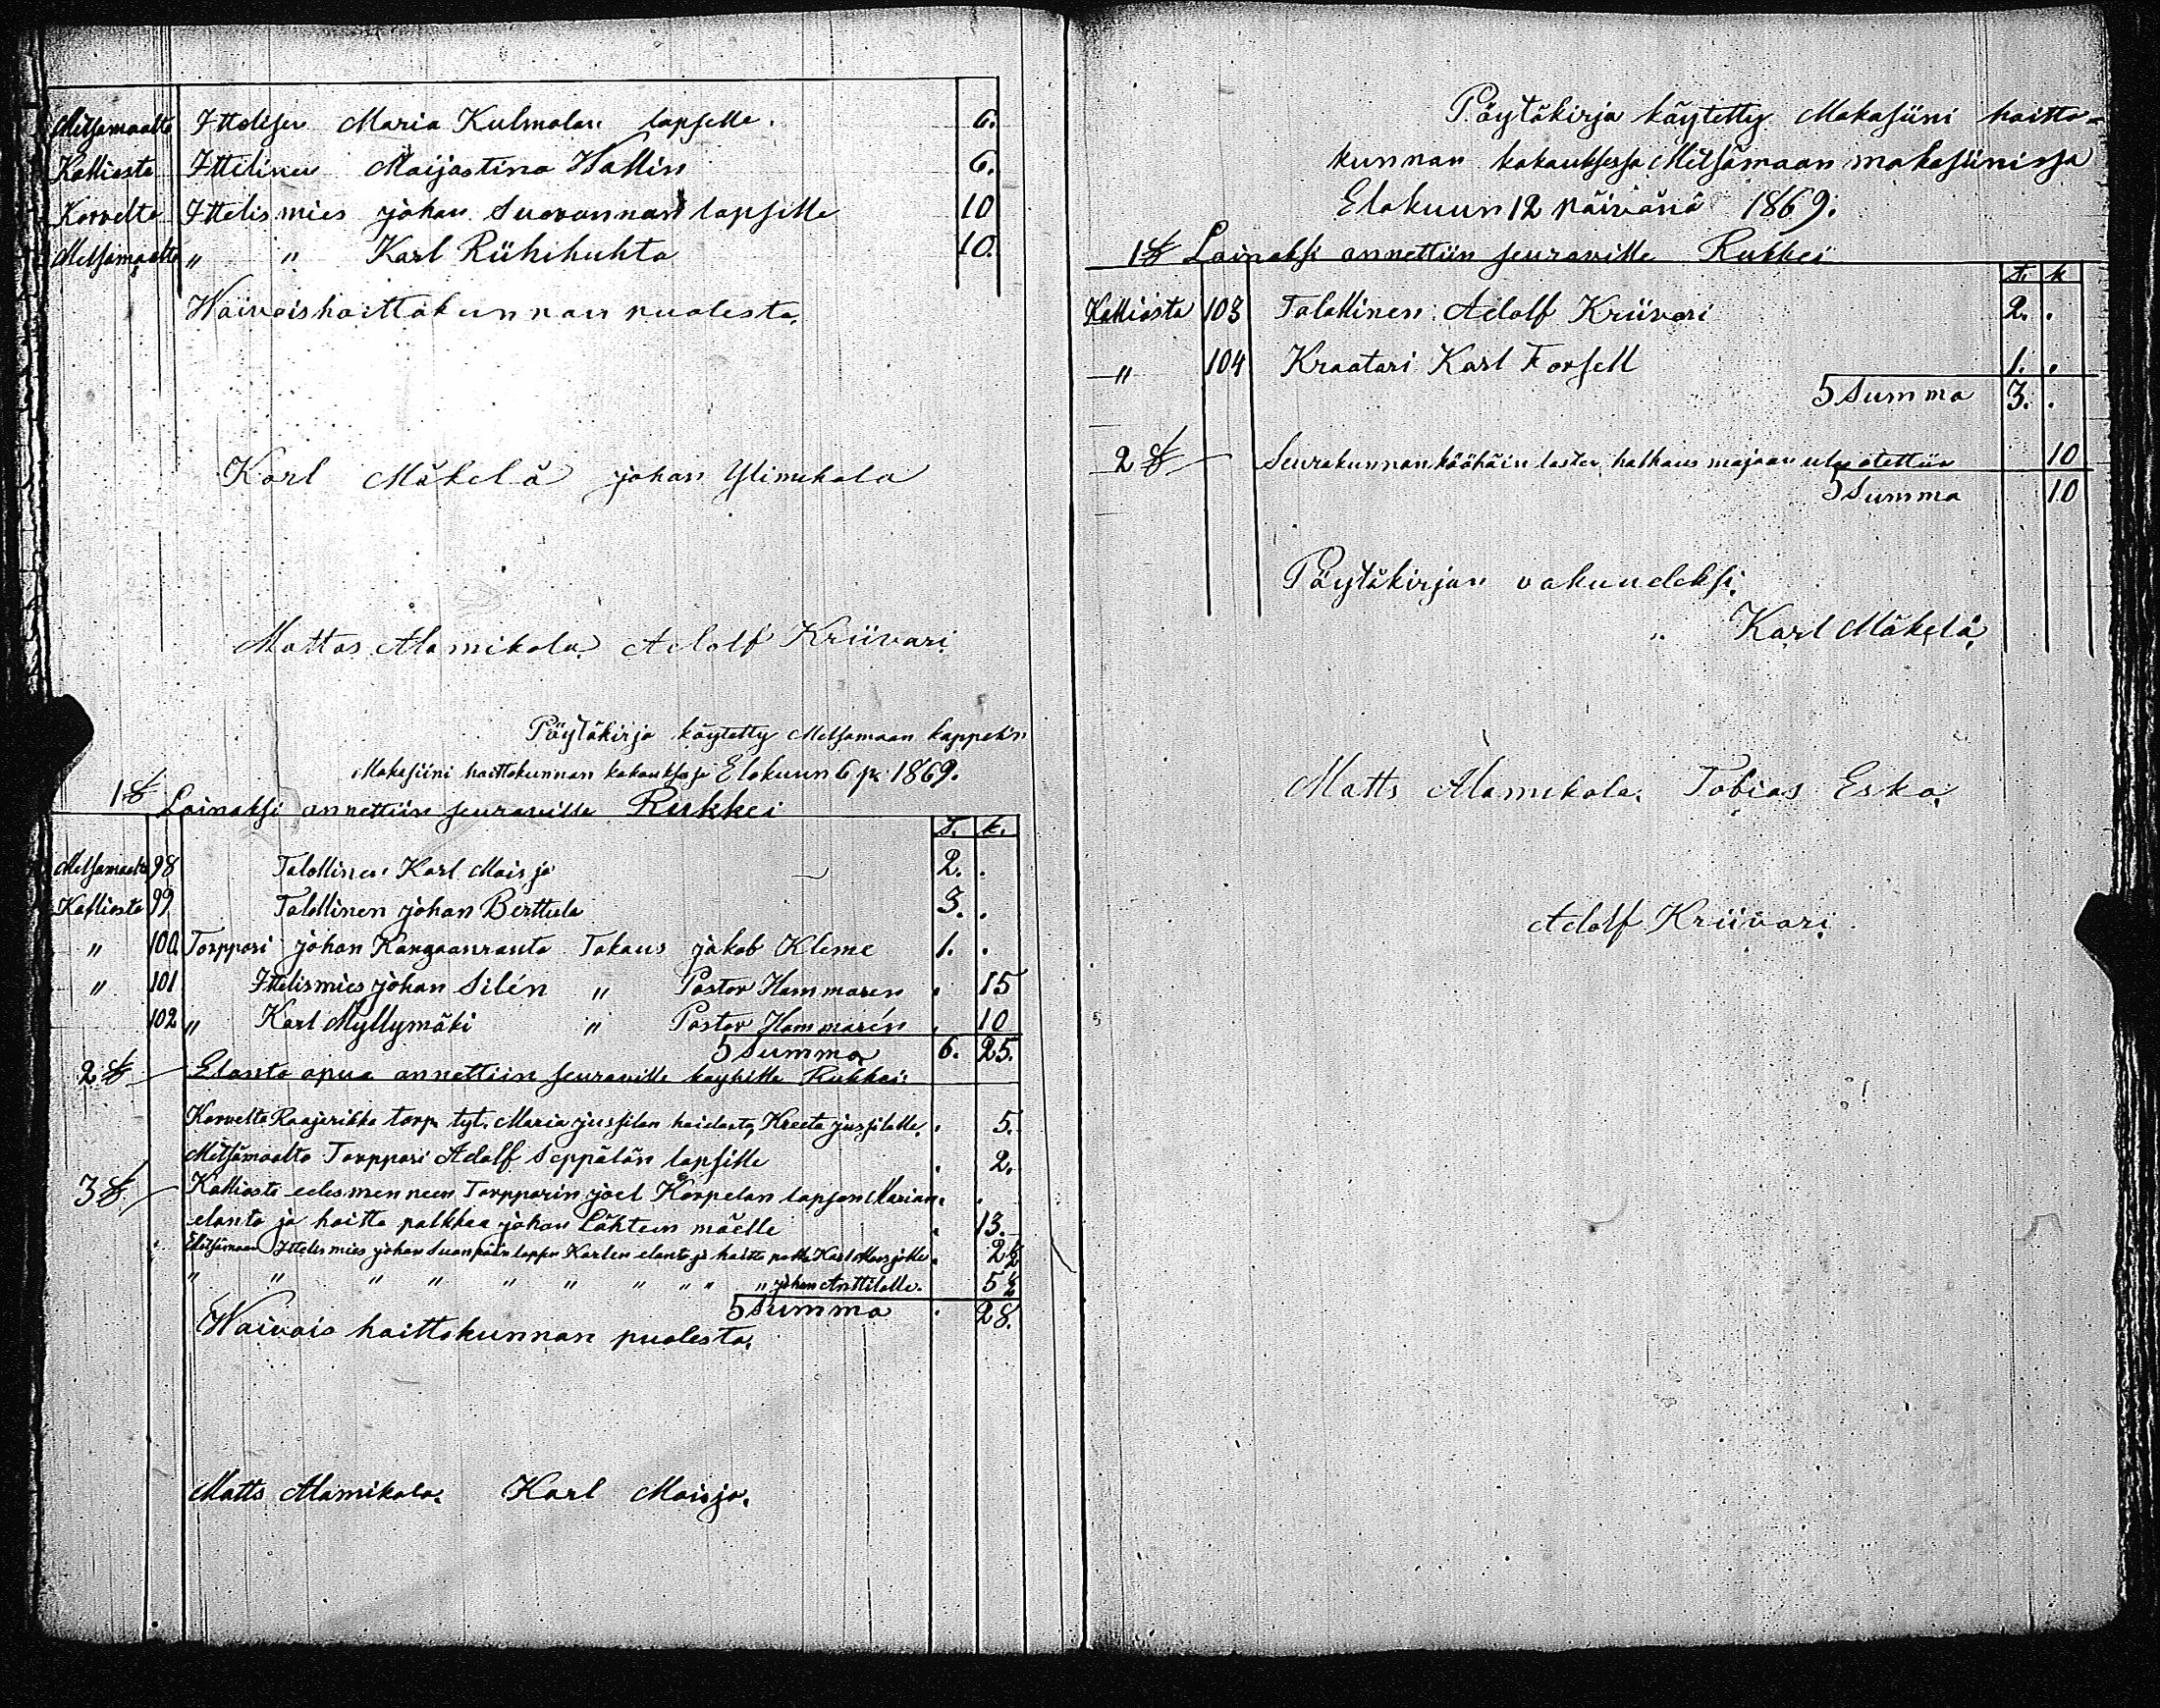 Metsämaalta Ittelisen Maria Kulmalan lapselle. 6.
Kalliosta Ittelinen Maijastina Wallin 6.
Korvelta Ittelis mies johan Suovannan lapsille 10
Metsämaalta " " Karl Riihihuhta 10.
Waivaishoittokunnan puolesta.
Karl Mäkelä johan Ylimikola
Mattas Alamikola Adolf Kriivari
Pöytäkirja käytetty Metsämaan kappelin
Makasiini hoittokunnan kokouksesa Elokuun 6 p: 1869.
1 § Lainaksi annettiin seuraville Rukkei
T. k.
Metsämaalta 98 Talollinen Karl Maisja 2. .
Kalliosta 99 Talollinen johan Berttula 3. .
" 100. Torppari johan Kangaanranta Takaus jakob Kleme 1. .
" 101 Ittelismies johan Silén " Pastor Hammaren . 15
102 " Karl Myllymäki " Pastor Hammarén . 10
Summa 6. 25.
2 § Elanto apua annettiin seuraville köyhille Rukkei:
Korvelta Raajerikko torp. tyt. Maria jussilan hoidosta, Kreeta jussilalle. . 5.
Metsämaalta Torppari Adolf Seppälän lapsille . 2.
3 § Kalliosta edesmenneen Torpparin joel Korpelan lapsen Marian . .
elanto ja hoitto palkkaa johan Lähteen mäelle . 13.
Metsämaan Ittelis mies johan Suonpään lapsen Karlen elanto ja hoitto palkka Karl Maisjalle . 2 1/2
" " " " " " " " " " johan Anttilalle. 5 1/2
Summa . 28.
Waivais hoittokunnan puolesta.
Matts Alamikola. Karl Maisja.
Pöytäkirja käytetty Makasiini hoitto-
kunnan kokouksessa Metsämaan makasiinissa
Elokuun 12 päivänä 1869.
1 § Lainaksi annettiin seuraville Rukkei
t. k
Kalliosta 103 Talollinen Adolf Kriivari 2. .
" 104 Kraatari Karl Forsell 1. .
Summa 3. .
2 § Seurakunnan köyhäin lasten halhaus majaan ulos otettiin 10
Summa 10
Pöytäkirjan vakuudeksi.
" Karl Mäkelä.
Matts Alamikola. Tobias Eska.
Adolf Kriivari.